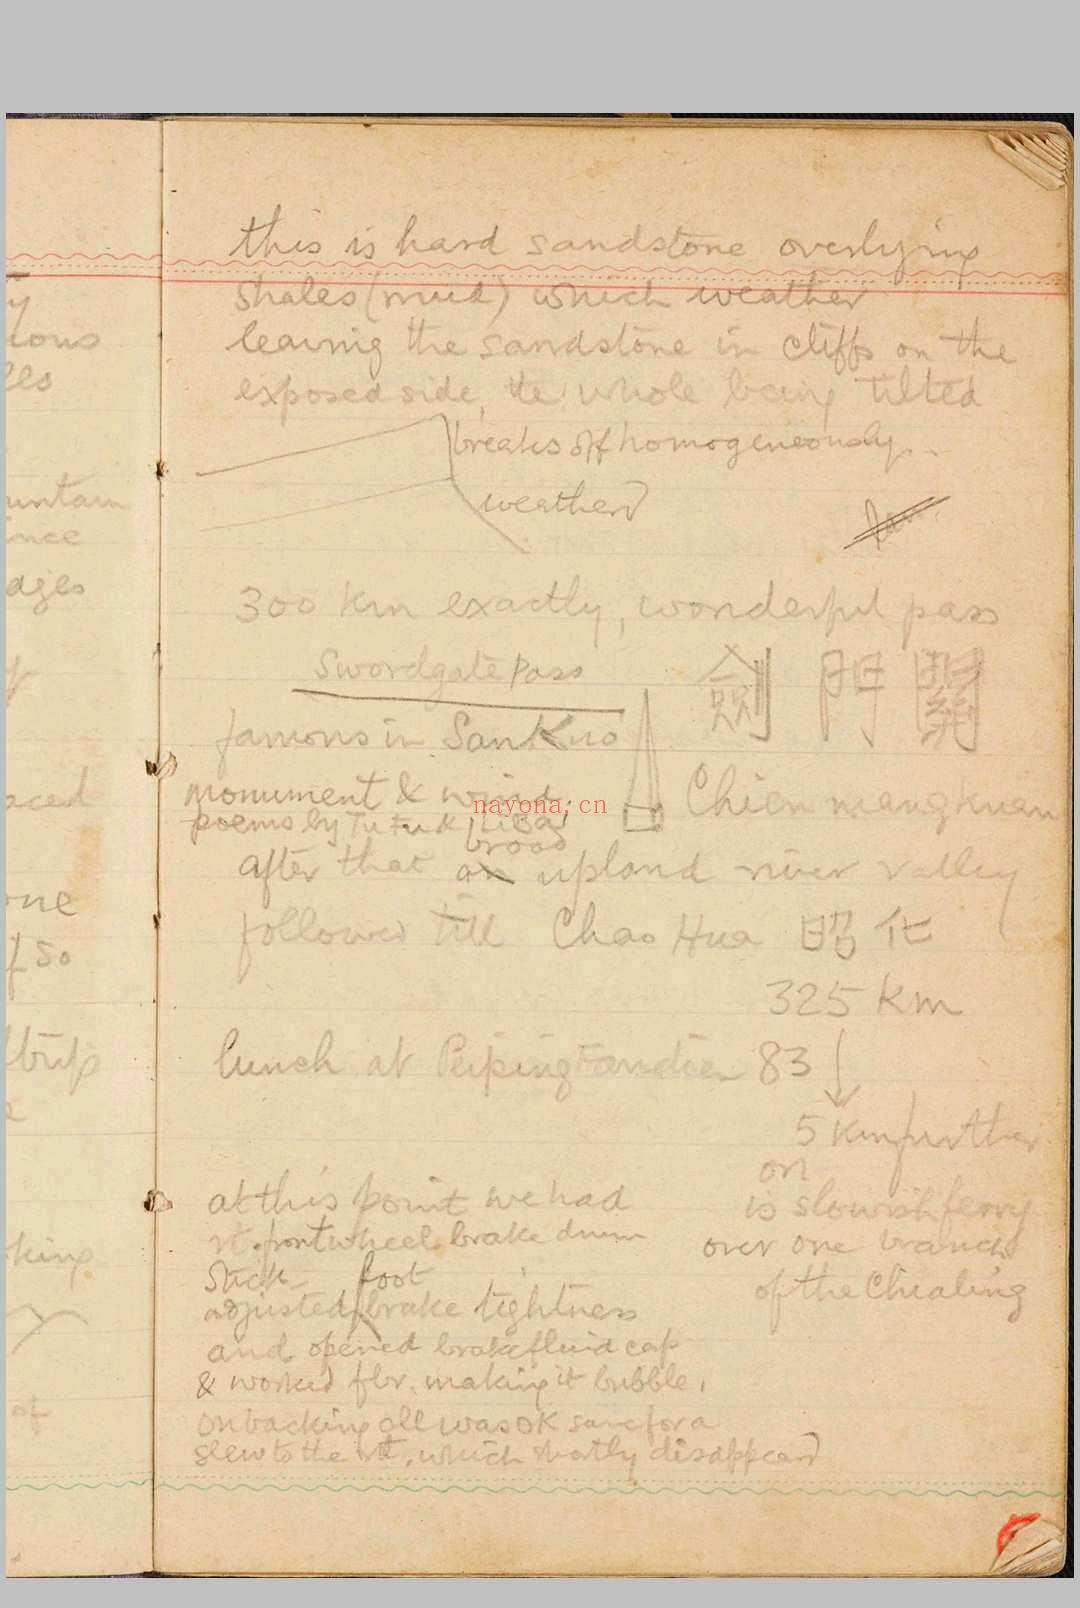 this is hard sandstone overlying
shales (mud) which weather
leaving the sandstone in cliffs on the
exposed side, the whole being tilted
breaks off homogeneously
weathers
300 km exactly, wonderful pass
Swordgate Pass
劍門關
famous in San Kuo
monument &
nayona.cn
Chien mang kuan
poems by Tu Fu & Li Bai
broad
after that an upland river valley
followed till Chao Hua 昭化
325 km
lunch at Peiping Fandien 83
5 km further
on
is slowish ferry
over one branch
of the Chialing
at this point we had
rt. front wheel brake drum
stick
foot
adjusted brake tightness
and opened brakefluid cap
& worked fbr. making it bubble,
on backing all was OK save for a
slew to the rt, which shortly disappeared
ious
untain
ince
dges
aced
one
f so
king
of